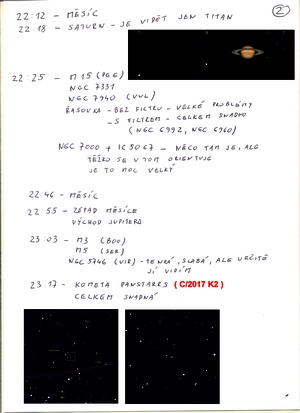 2
22:12 - MĚSÍC
22:18 - SATURN - JE VIDĚT JEN TITAN
22:25 - M15 (PEG)
NGC 7331
NGC 7940 (VUL)
ŘASOVKA - BEZ FILTRU - VELKÉ PROBLÉMY
- S FILTREM - CELKEM SNADNO
(NGC 6992, NGC 6960)
NGC 7000 + IC 5067 - NĚCO TAM JE, ALE
TĚŽKO SE V TOM ORIENTUJE
JE TO MOC VELKÝ
22:46 - MĚSÍC
22:55 - ZÁPAD MĚSÍCE
VÝCHOD JUPITERA
23:03 - M3 (BOO)
M5 (SER)
NGC 5746 (VIR) - TENKÁ, SLABÁ, ALE URČITĚ
JI VIDÍM
23:17 - KOMETA PANSTARRS ( C/2017 K2 )
CELKEM SNADNÁ